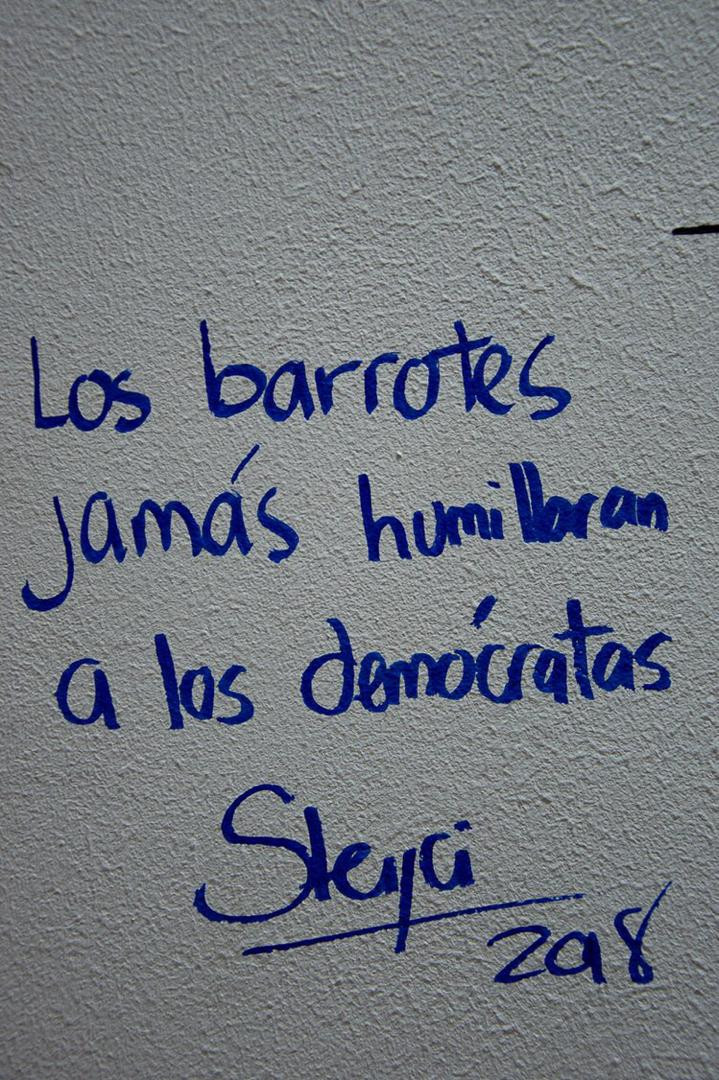 Los barrotes
jamás humillaran
a los demócratas
Steyci
2018